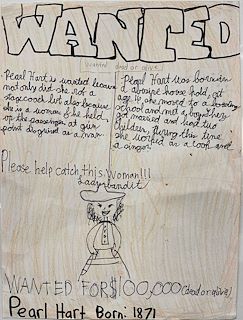 WANTED
wanted dead or alive
Pearl Hart is wanted because
not only did she rob a
stagecoach but also because
she is a woman & she held
up the passenger at gun
point disguised as a man
Pearl Hart was born in
a abusive house hold, at
age 16 she moved to a boarding
school and met a boy they
got married and had two
children, during this time
she worked as a cook and
a singer.
Please help catch this Woman!!!
Lady bandit
WANTED FOR $100,000 (dead or alive)
Pearl Hart Born: 1871